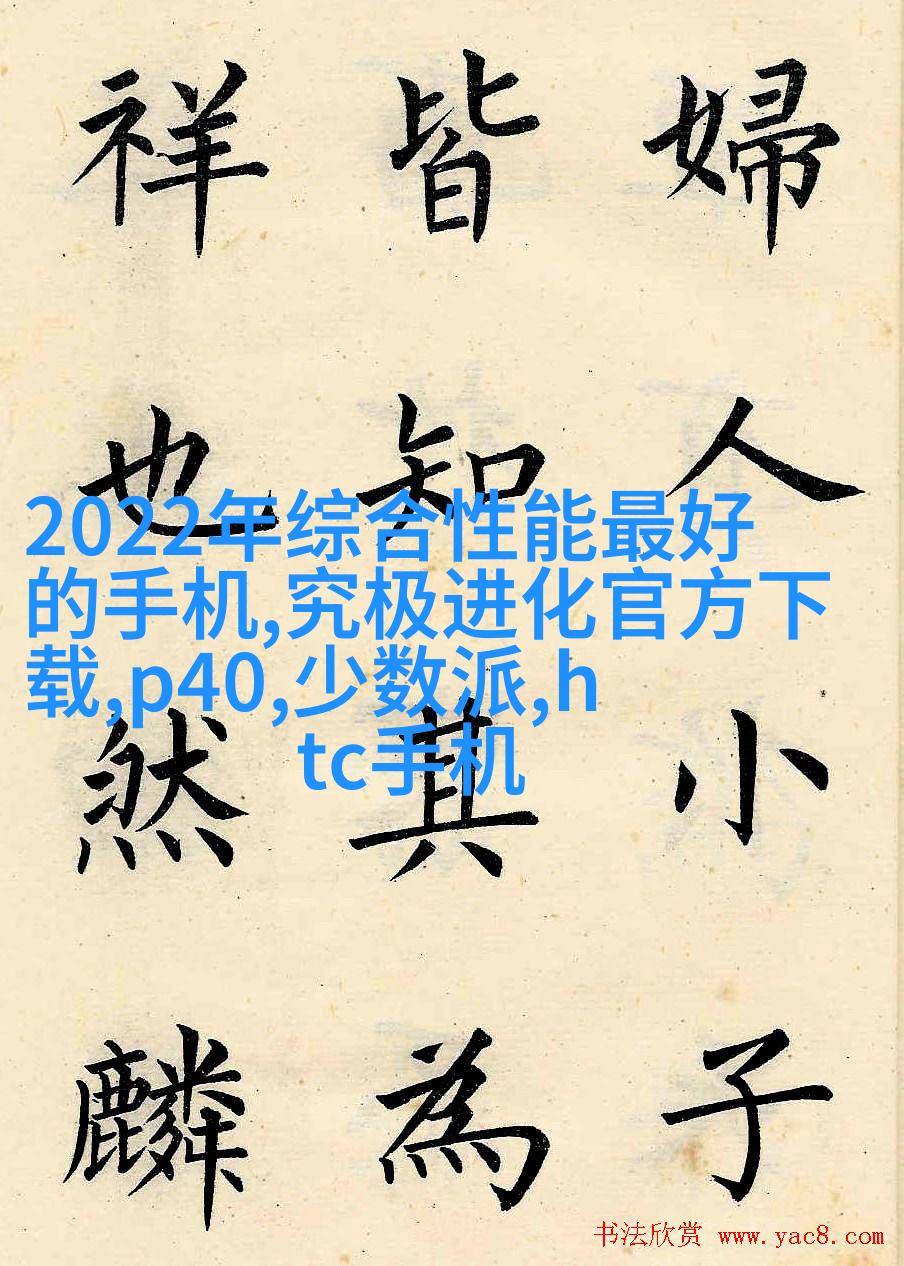 婦人小子
皆知其為
祥也然麟
2022年综合性能最好
的手机,究极进化官方下
载,p40,少数派,h
tc手机
书法欣赏 www.yac8.com